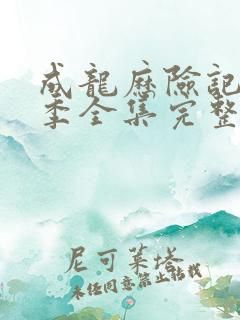 成龍歷險記
季全集完整
尼可萊塔
未經同意禁止轉載